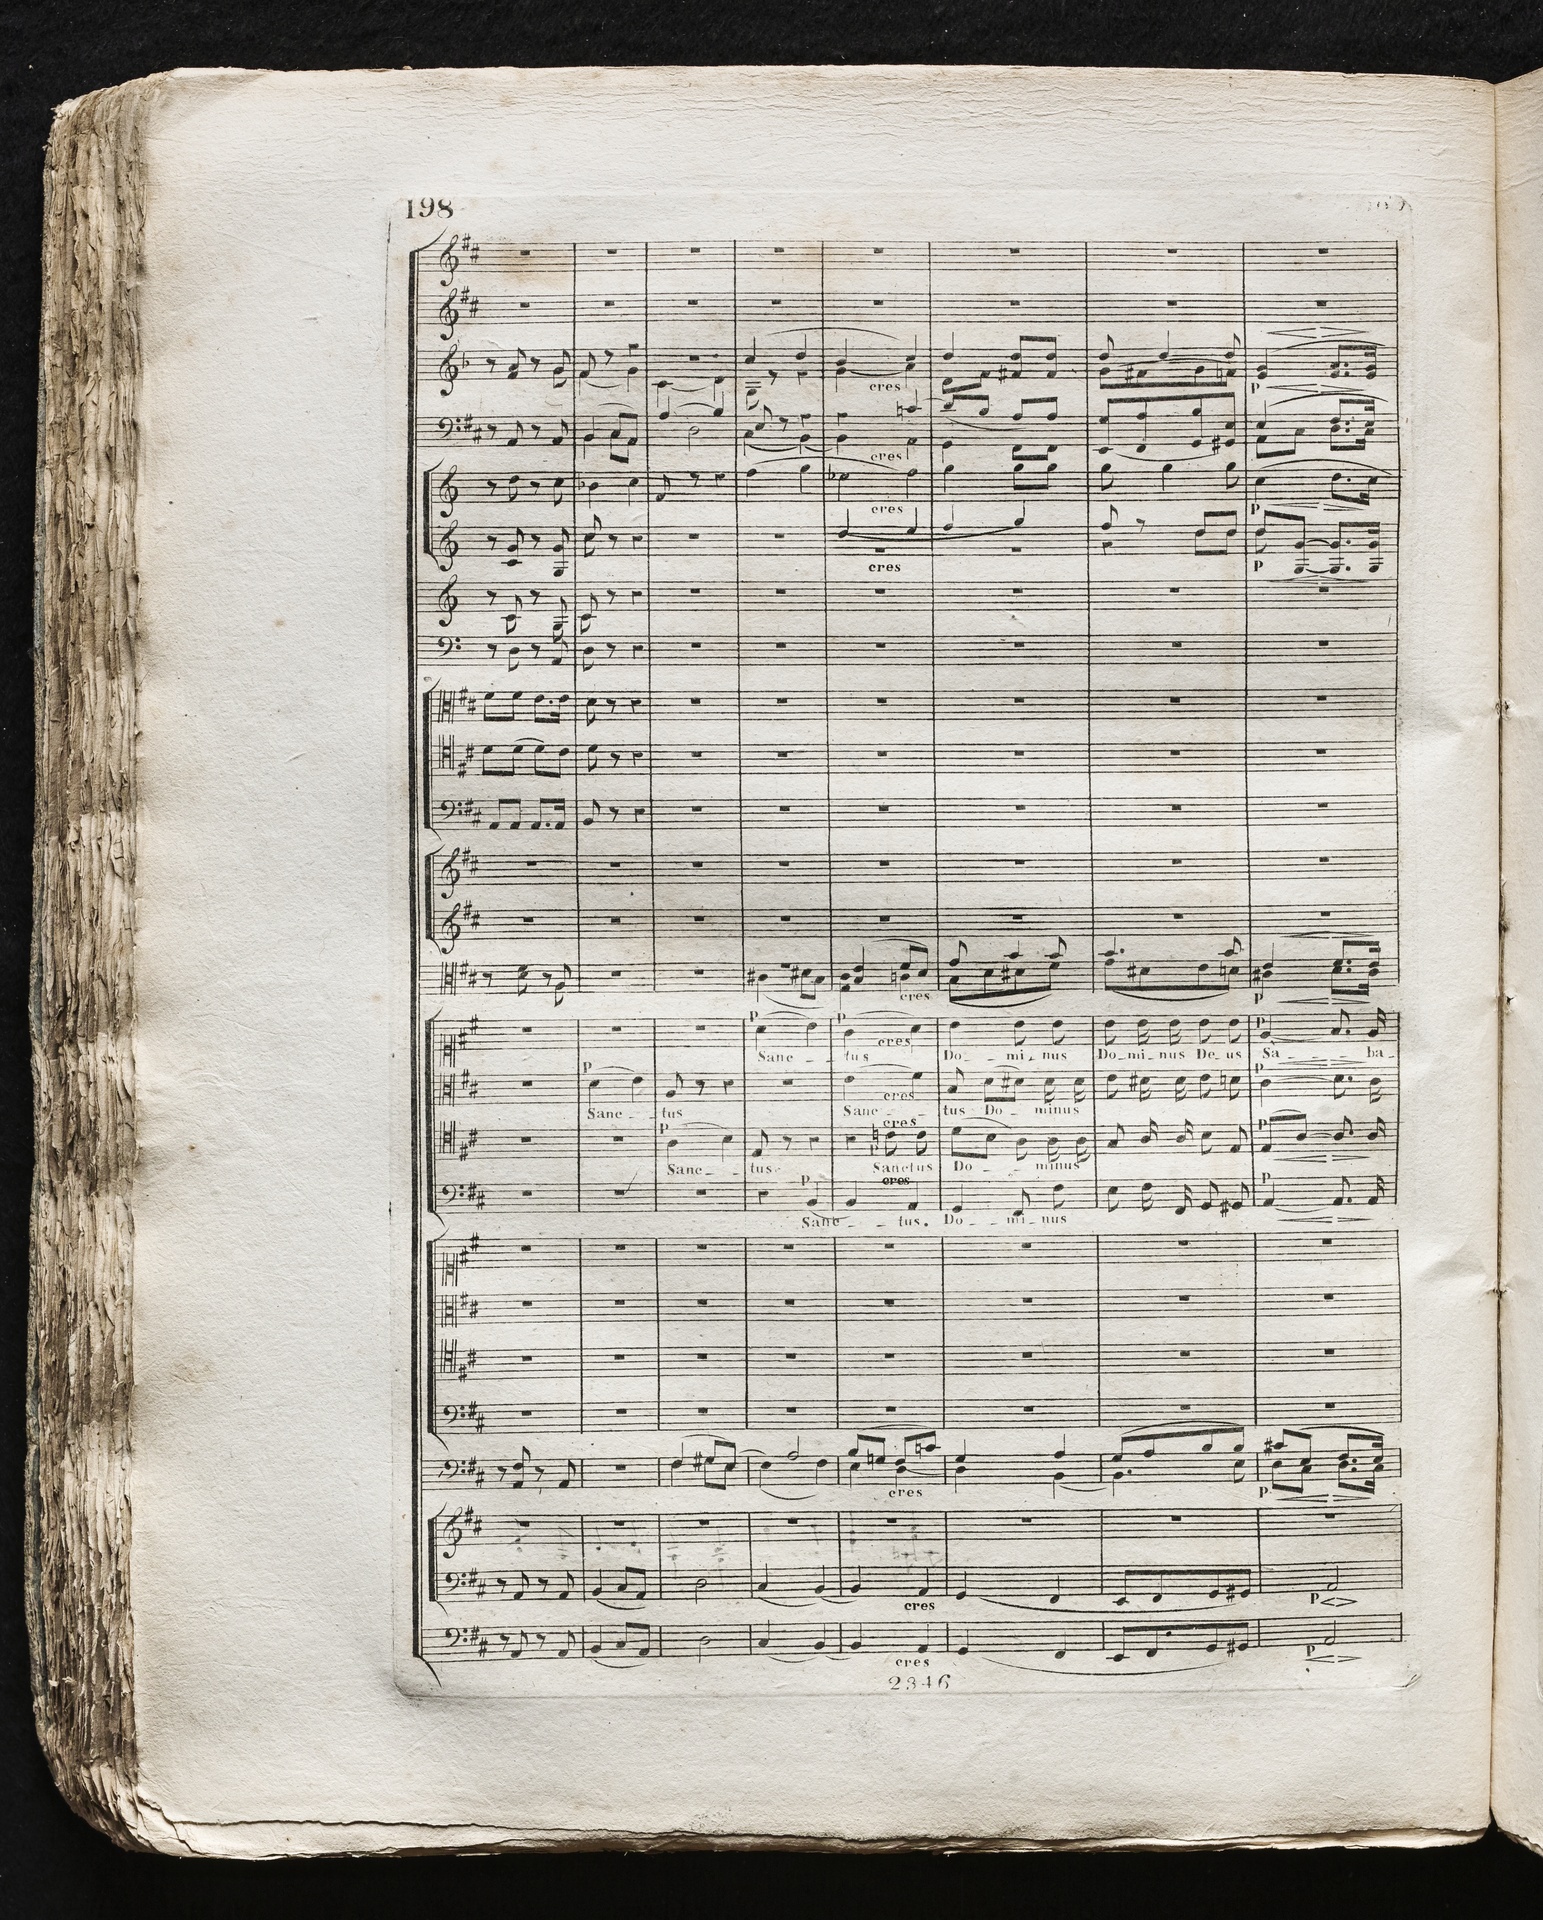 198
cres
P
cres
cres
P
cres
P
cres
P
P
P
P
cres
Sanc - - tus Do - - mi - nus Do - mi - nus De - us Sa - - - ba -
P
P
cres
Sanc - - tus Sanc - - tus Do - minus
P
cres
P
Sanc - - tus. Sanctus Do - - minus
P
cres
P
Sanc - - tus. Do - - mi - nus
cres
P
cres
P
cres
P
2346